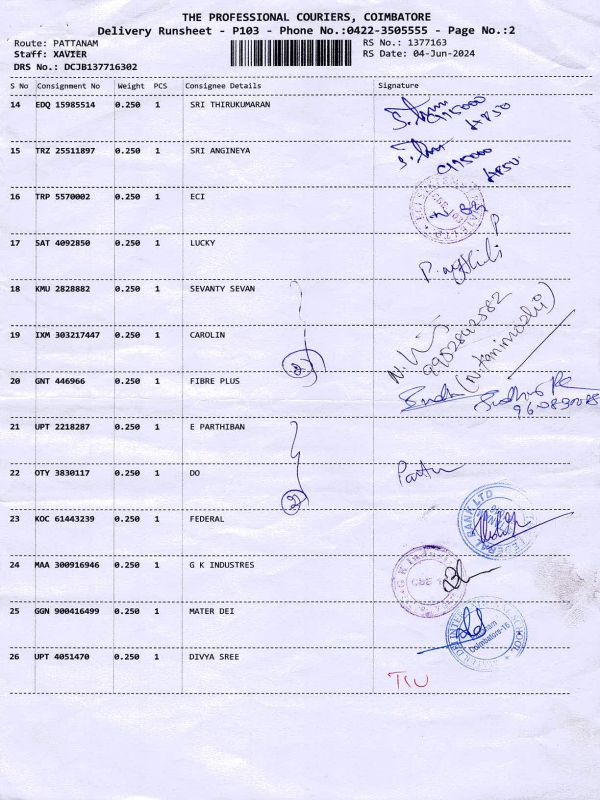 THE PROFESSIONAL COURIERS, COIMBATORE
Delivery Runsheet - P103 - Phone No.:0422-3505555 - Page No.:2
Route: PATTANAM RS No.: 1377163
Staff: XAVIER RS Date: 04-Jun-2024
DRS No.: DCJB137716302
S No Consignment No Weight PCS Consignee Details Signature
14 EDQ 15985514 0.250 1 SRI THIRUKUMARAN
15 TRZ 25511897 0.250 1 SRI ANGINEYA
16 TRP 5570002 0.250 1 ECI
17 SAT 4092850 0.250 1 LUCKY
18 KMU 2828882 0.250 1 SEVANTY SEVAN
19 IXM 303217447 0.250 1 CAROLIN
9952842582
20 GNT 446966 0.250 1 FIBRE PLUS
21 UPT 2218287 0.250 1 E PARTHIBAN
22 OTY 3830117 0.250 1 DO
23 KOC 61443239 0.250 1 FEDERAL
BANK LTD
24 MAA 300916946 0.250 1 G K INDUSTRES
25 GGN 900416499 0.250 1 MATER DEI
Coimbatore-16
SCHOOL
26 UPT 4051470 0.250 1 DIVYA SREE